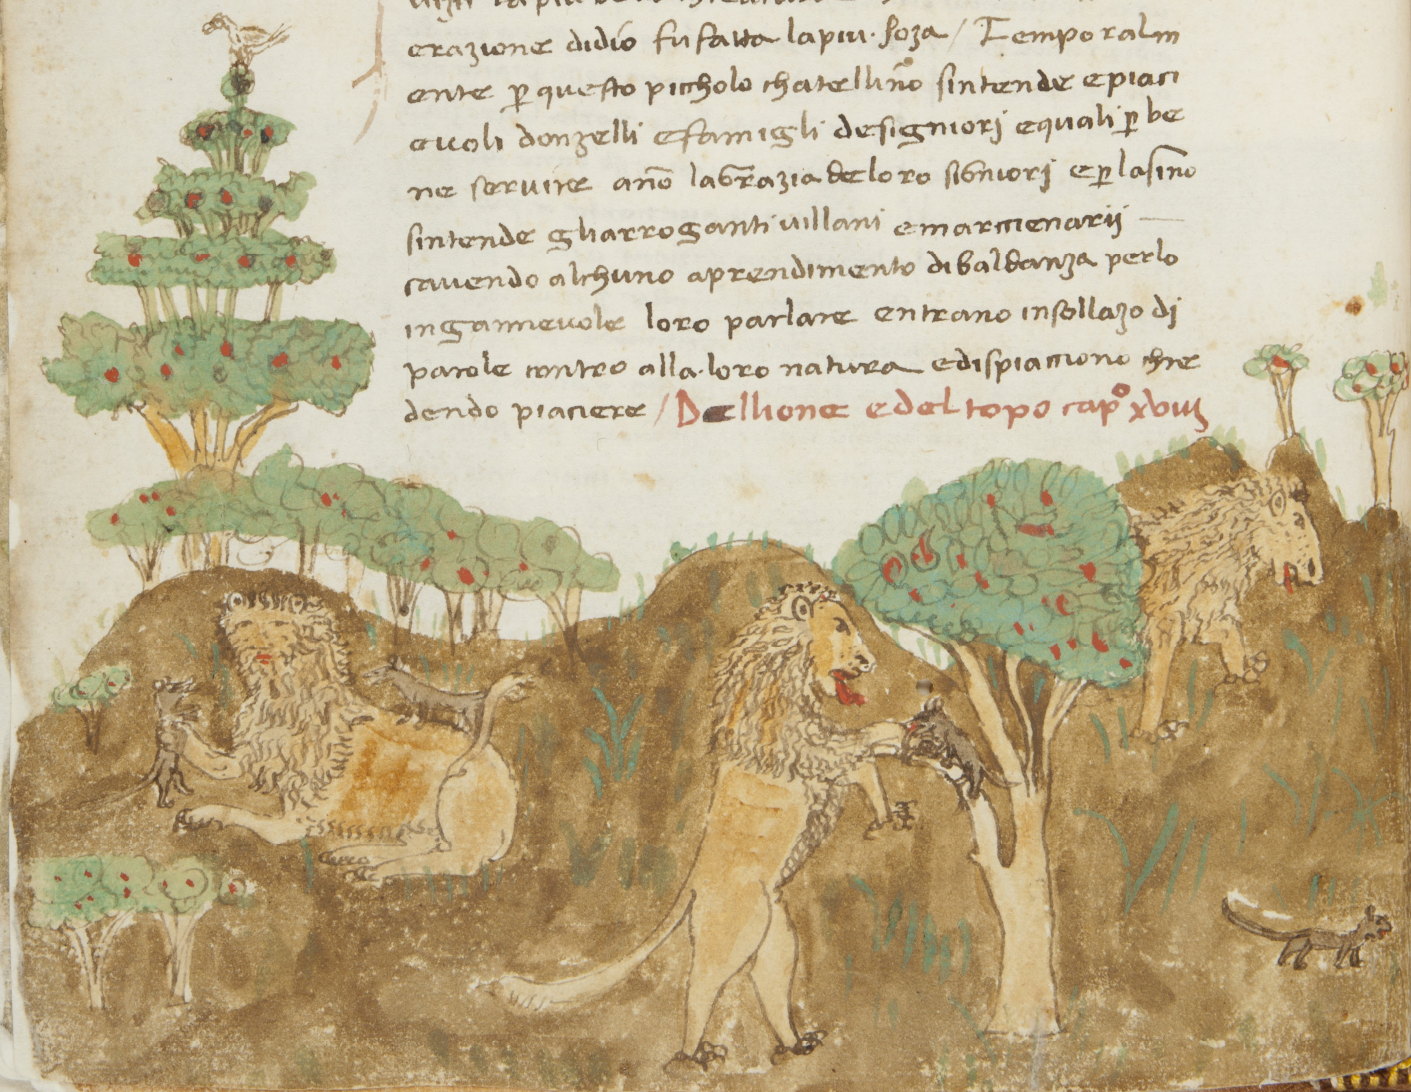 erazione didio fu fatta la piu soza / Temporalm
ente p questo piccholo chatellino sintende e piaci
evoli donzelli e famigli de signiorj e quali p be
ne servire ano la Grazia de loro signiorj e p lasino
sintende gli arroganti villani e marcienarij
cavendo alchuno aprendimento di baldanza per lo
ingannevole loro parlare entrano in sollazo di
parole contro alla loro natura e dispiacciono chre
dendo piaciere / Del lione e del topo capº xviiij